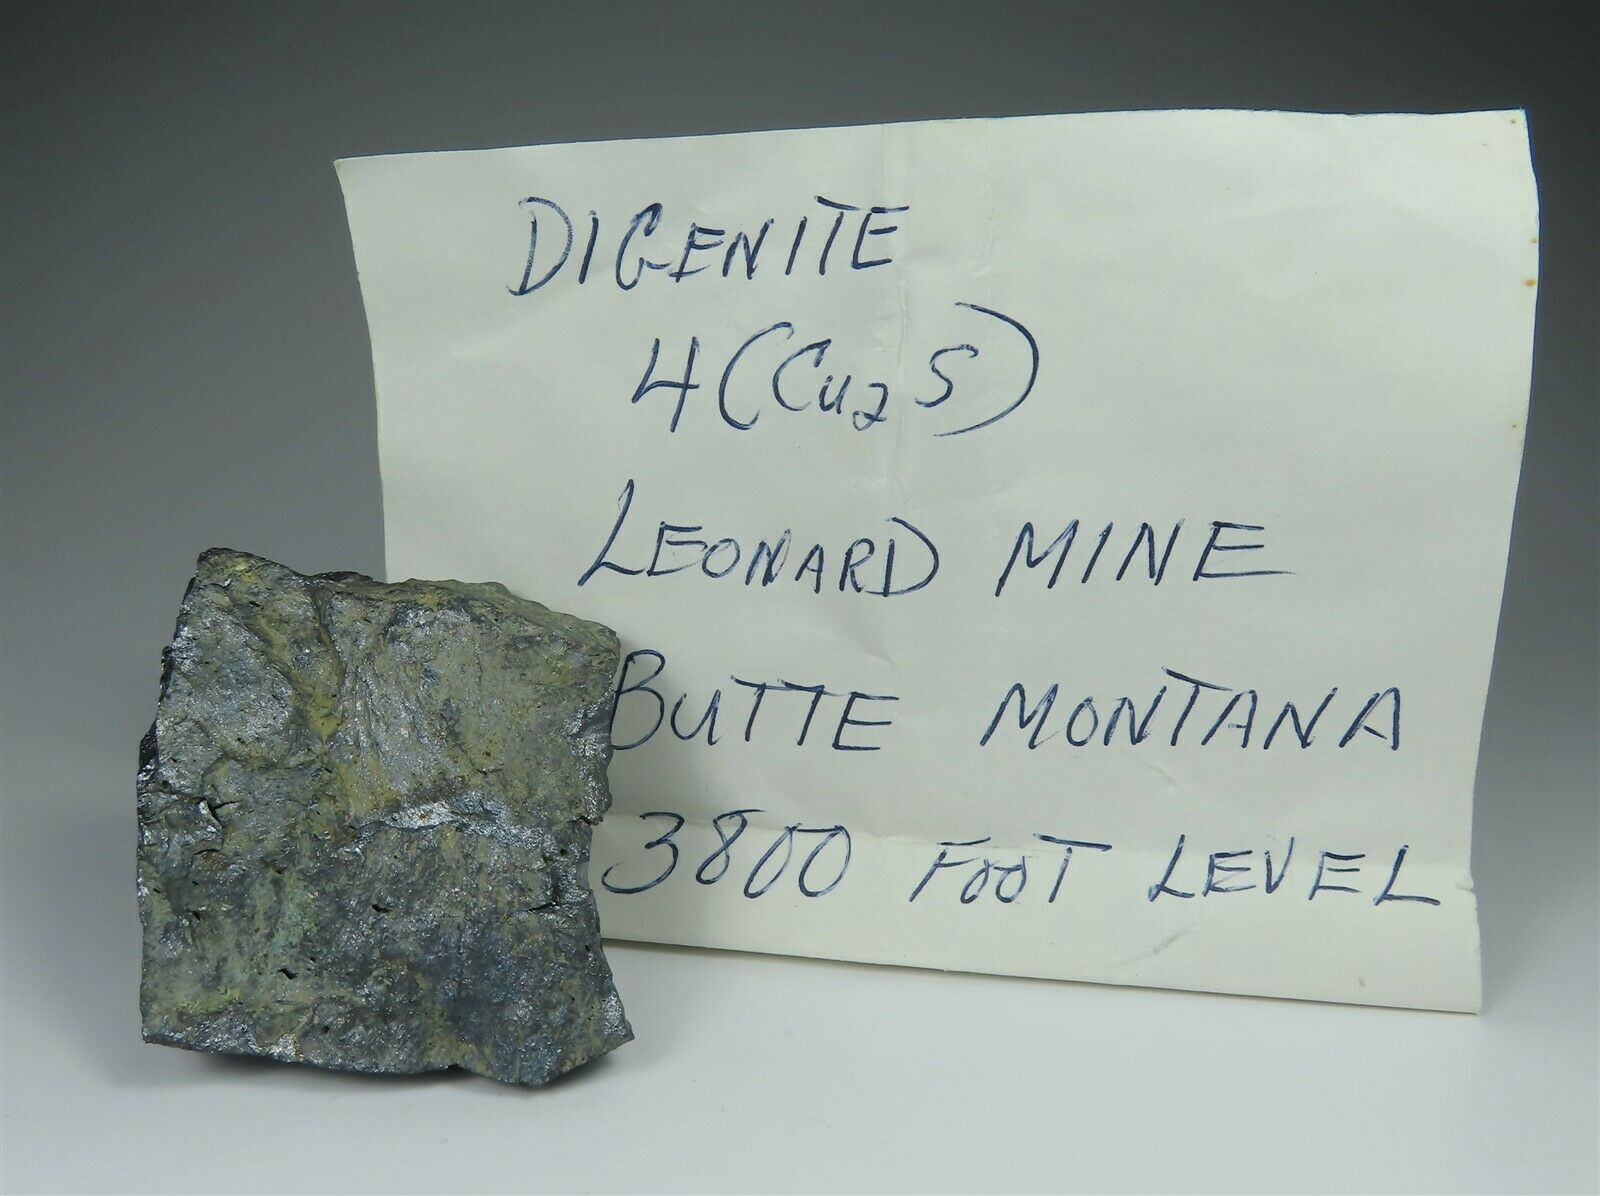 DIGENITE
4(Cu₂S)
LEONARD MINE
BUTTE MONTANA
3800 FOOT LEVEL